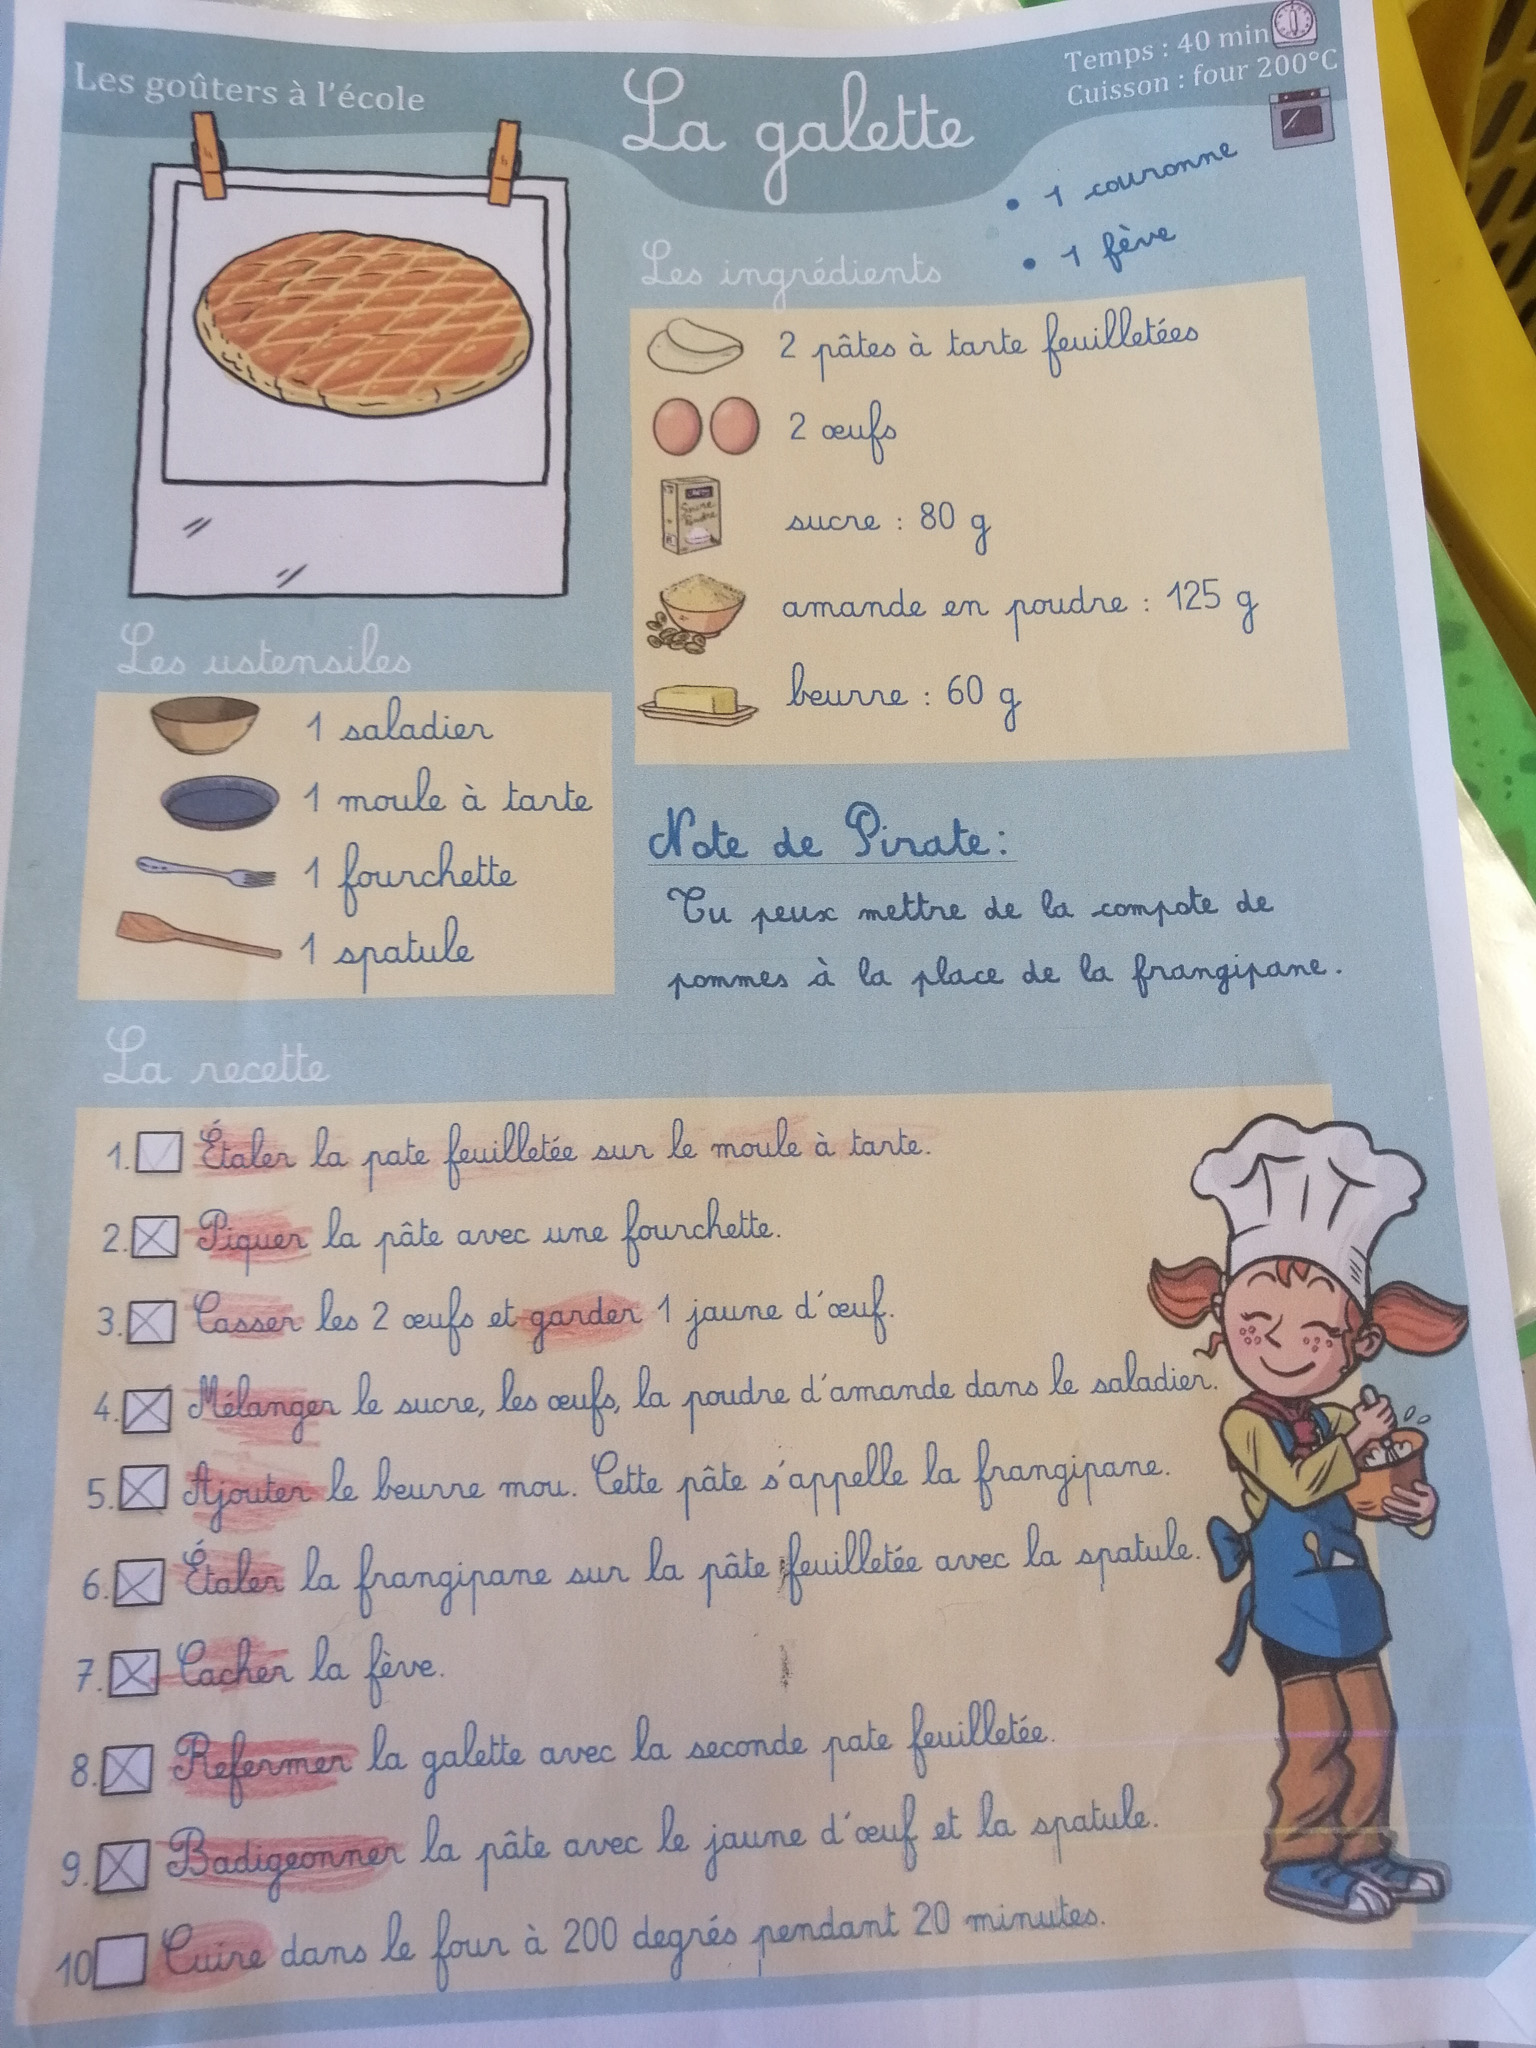 Les goûters à l'école
La galette
Temps : 40 min
Cuisson : four 200°C
• 1 couronne
• 1 fève
Les ingrédients
2 pâtes à tarte feuilletées
2 œufs
Sucre
Poudre
sucre : 80 g
amande en poudre : 125 g
beurre : 60 g
Les ustensiles
1 saladier
1 moule à tarte
1 fourchette
1 spatule
Note de Pirate :
Tu peux mettre de la compote de
pommes à la place de la frangipane.
La recette
1. Étaler la pate feuilletée sur le moule à tarte.
2. Piquer la pâte avec une fourchette.
3. Casser les 2 œufs et garder 1 jaune d'œuf.
4. Mélanger le sucre, les œufs, la poudre d'amande dans le saladier.
5. Ajouter le beurre mou. Cette pâte s'appelle la frangipane.
6. Étaler la frangipane sur la pâte feuilletée avec la spatule.
7. Cacher la fève.
8. Refermer la galette avec la seconde pate feuilletée.
9. Badigeonner la pâte avec le jaune d'œuf et la spatule.
10 Cuire dans le four à 200 degrés pendant 20 minutes.